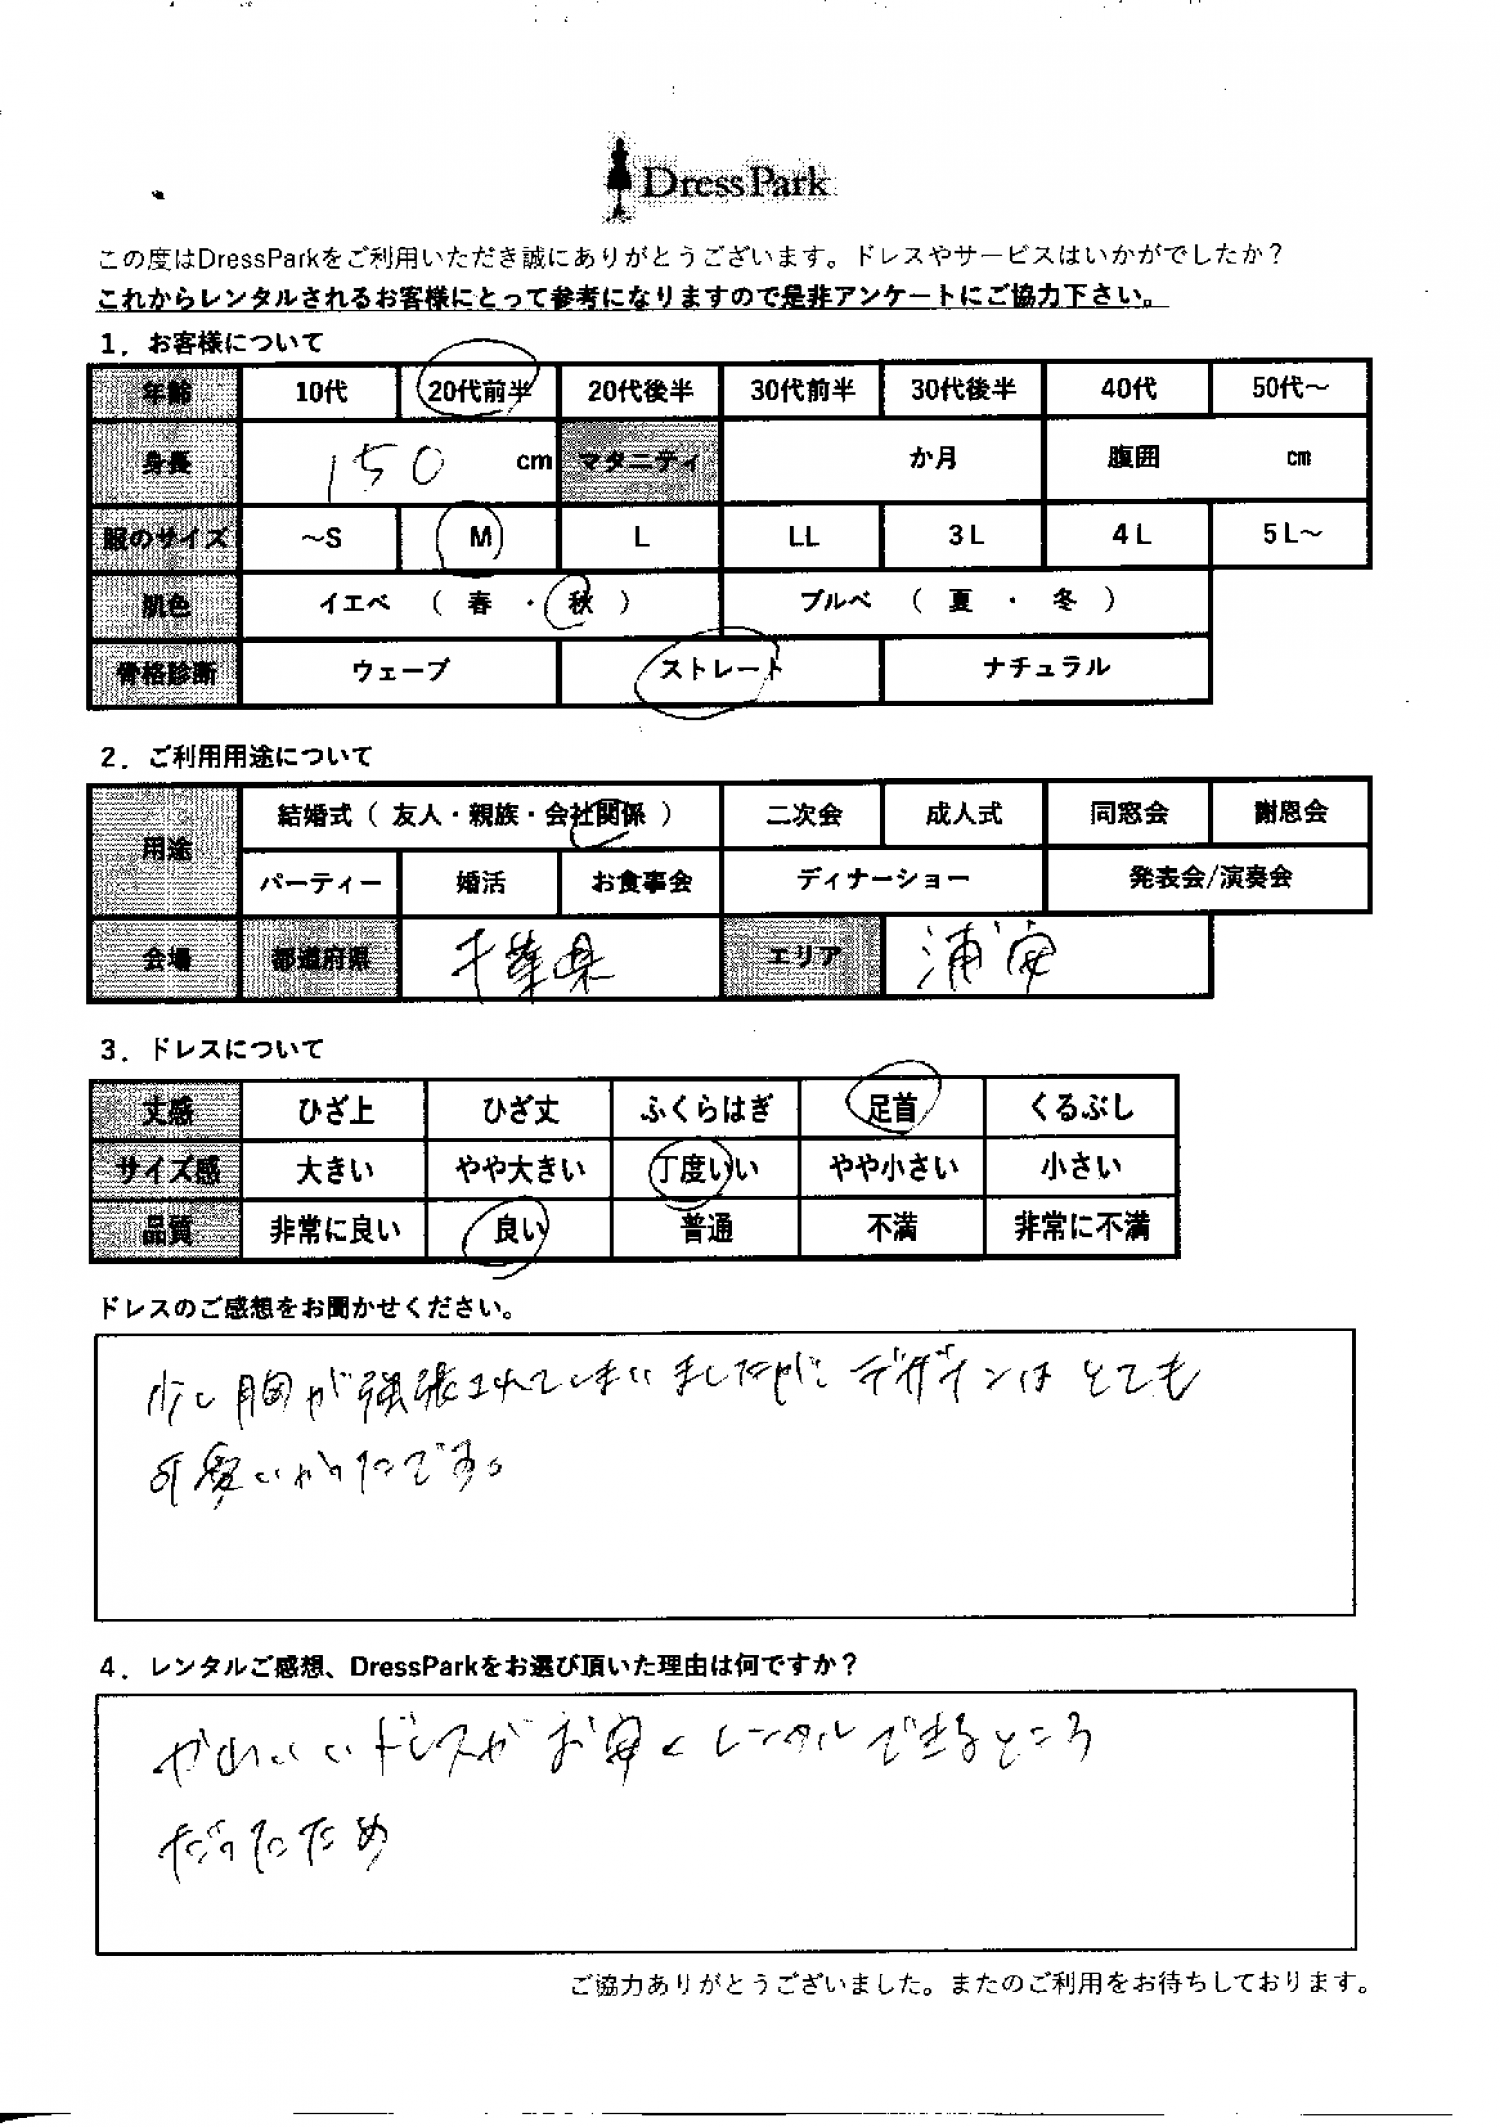 DressPark
この度はDressParkをご利用いただき誠にありがとうございます。ドレスやサービスはいかがでしたか？
これからレンタルされるお客様にとって参考になりますので是非アンケートにご協力下さい。
1．お客様について
年齢 10代 20代前半 20代後半 30代前半 30代後半 40代 50代～
身長 150 cm マタニティ か月 腹囲 cm
服のサイズ ～S M L LL 3L 4L 5L～
肌色 イエベ （ 春 ・ 秋 ） ブルベ （ 夏 ・ 冬 ）
骨格診断 ウェーブ ストレート ナチュラル
2．ご利用用途について
用途 結婚式（ 友人・親族・会社関係 ） 二次会 成人式 同窓会 謝恩会
パーティー 婚活 お食事会 ディナーショー 発表会/演奏会
会場 都道府県 千葉県 エリア 浦安
3．ドレスについて
丈感 ひざ上 ひざ丈 ふくらはぎ 足首 くるぶし
サイズ感 大きい やや大きい 丁度いい やや小さい 小さい
品質 非常に良い 良い 普通 不満 非常に不満
ドレスのご感想をお聞かせください。
少し胸が強張されてしまいましたがデザインはとても
可愛いかったです。
4．レンタルご感想、DressParkをお選び頂いた理由は何ですか？
かわいいドレスがお安くレンタルできるところ
だったため
ご協力ありがとうございました。またのご利用をお待ちしております。